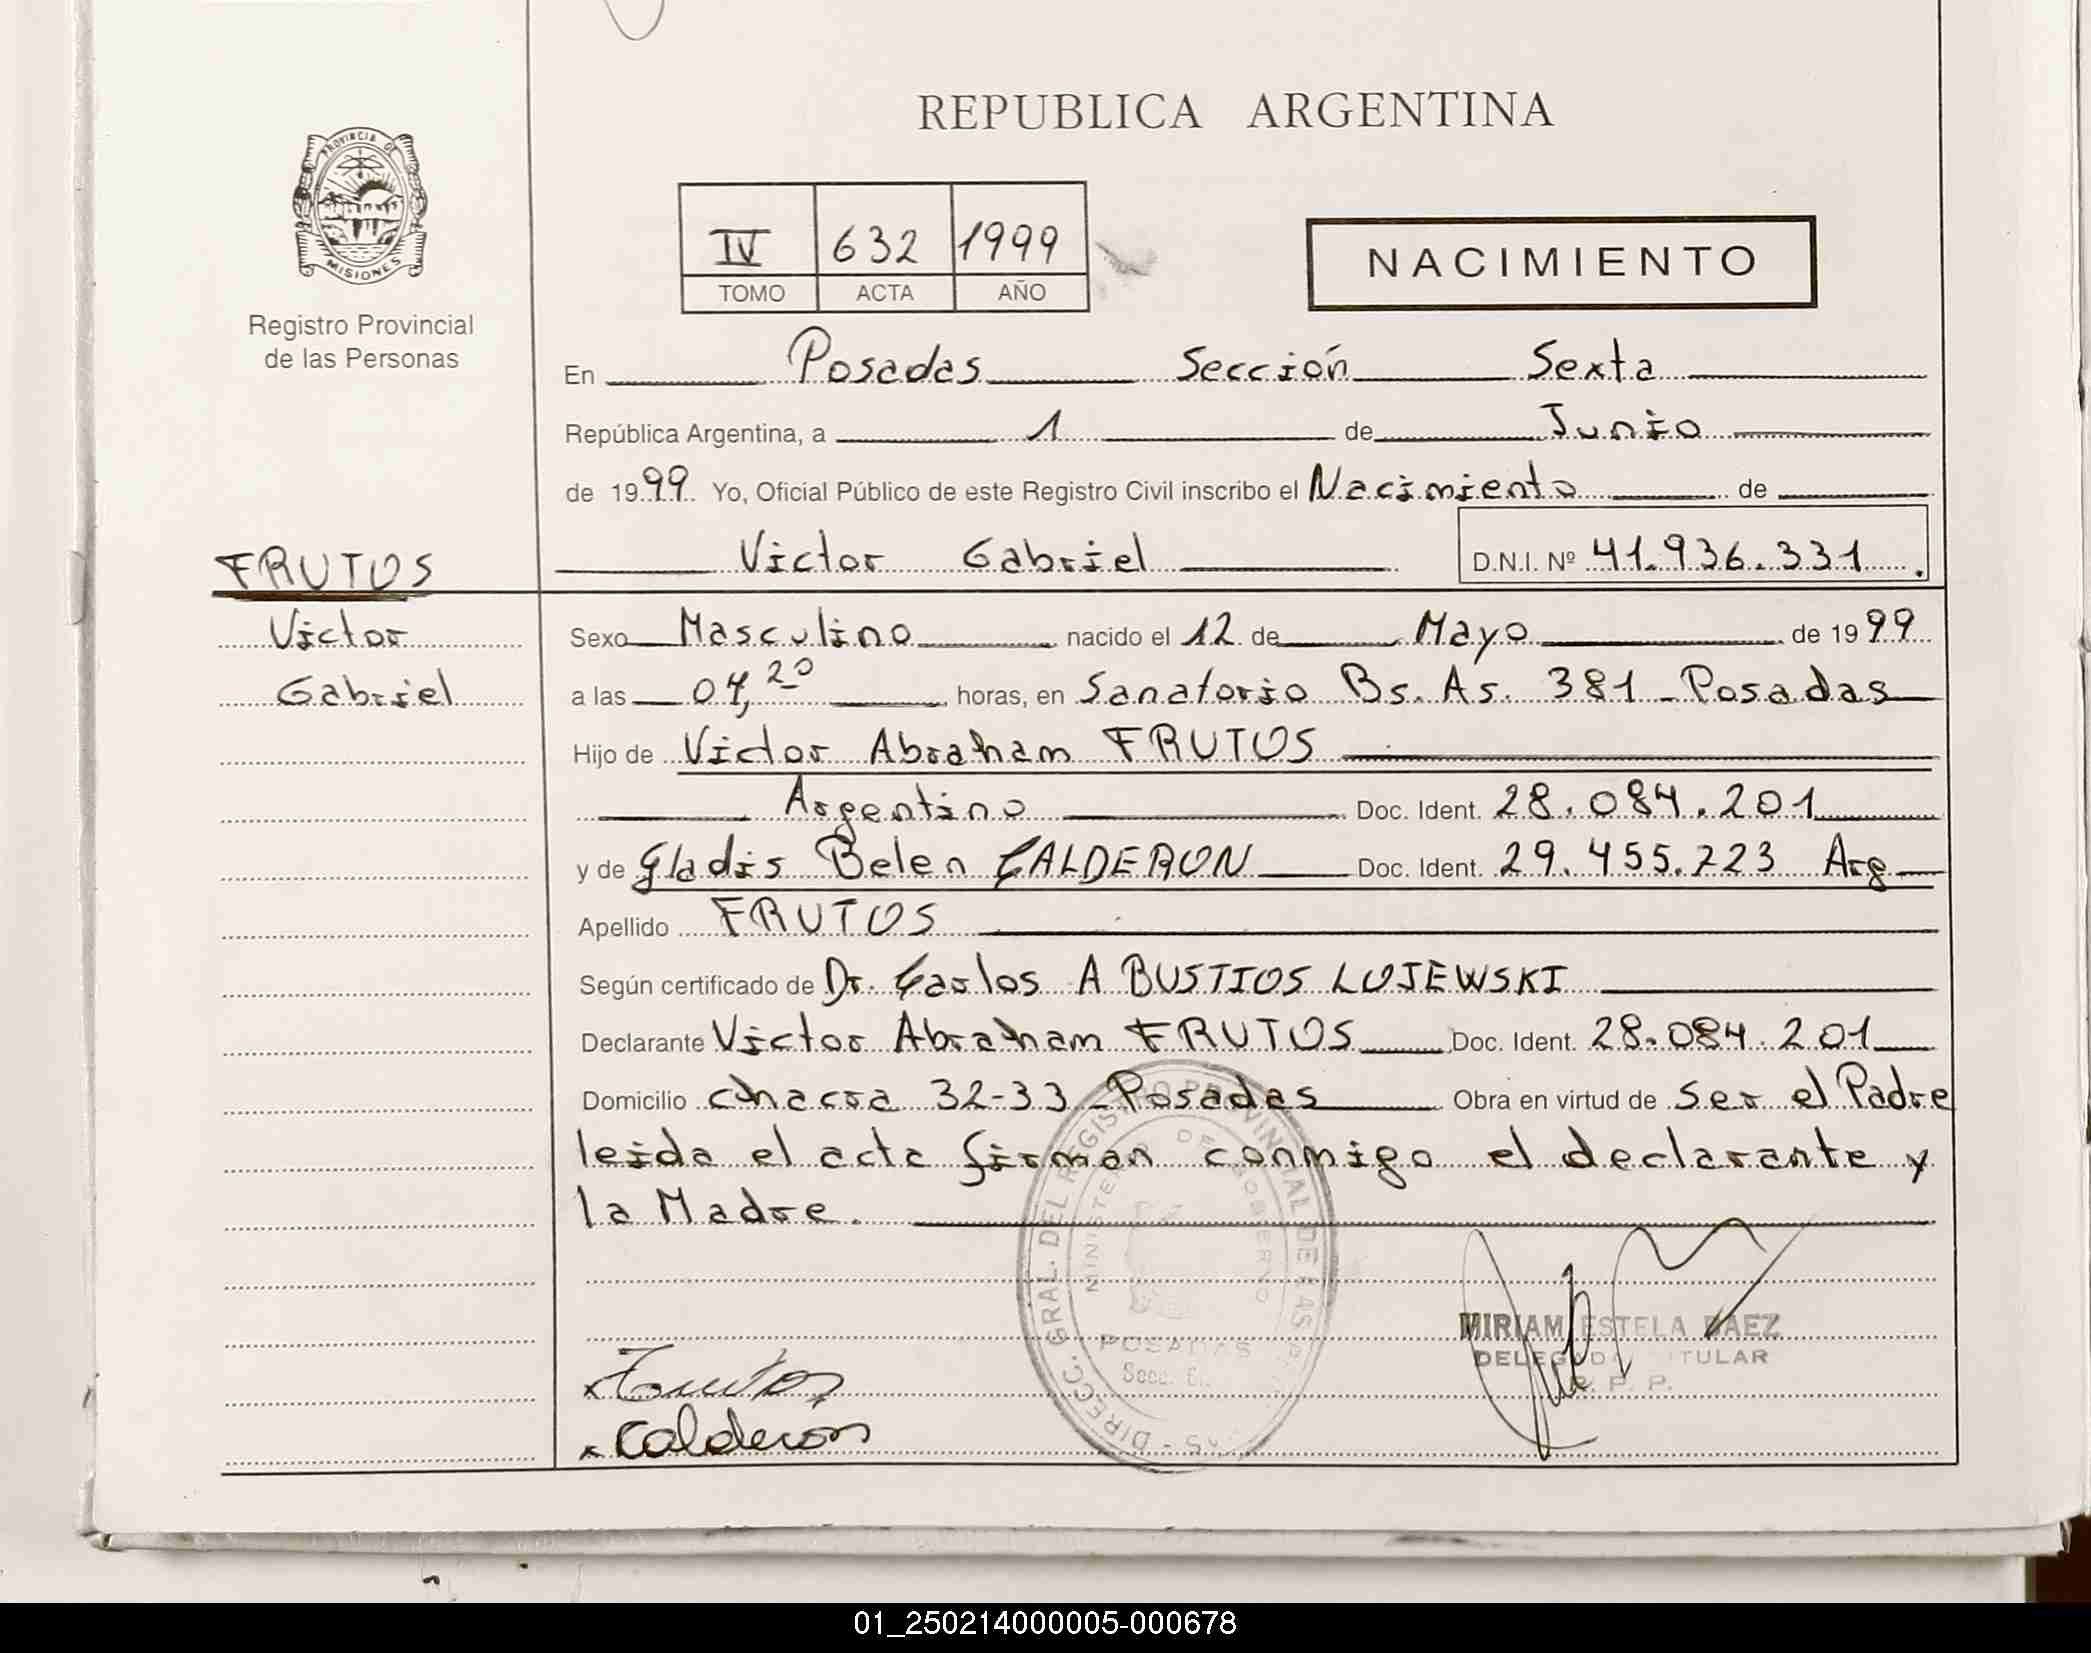 REPUBLICA ARGENTINA
PROVINCIA DE
MISIONES
Registro Provincial
de las Personas
IV 632 1999
TOMO ACTA AÑO
NACIMIENTO
En Posadas Sección Sexta
República Argentina, a 1 de Junio
de 1999 Yo, Oficial Público de este Registro Civil inscribo el Nacimiento de
Victor Gabriel D.N.I. Nº 41.936.331.
FRUTOS
Victor
Gabriel
Sexo Masculino nacido el 12 de Mayo de 1999
a las 04,20 horas, en Sanatorio Bs. As. 381 - Posadas
Hijo de Victor Abraham FRUTOS
Argentino Doc. Ident. 28.084.201
y de Gladis Belen CALDERON Doc. Ident. 29.455.723 Arg
Apellido FRUTOS
Según certificado de Dr. Carlos A BUSTIOS LOJEWSKI
Declarante Victor Abraham FRUTOS Doc. Ident. 28.084.201
Domicilio chacra 32-33 - Posadas Obra en virtud de ser el Padre
leida el acta firman conmigo el declarante y
la Madre.
DIRECC. GRAL. DEL REGISTRO PROVINCIAL DE LAS
MINISTERIO DE GOBIERNO
POSADAS
Secc.
MIRIAM ESTELA BAEZ
DELEGADA TITULAR
R. P. P.
x Frutos
x Calderon
01_250214000005-000678